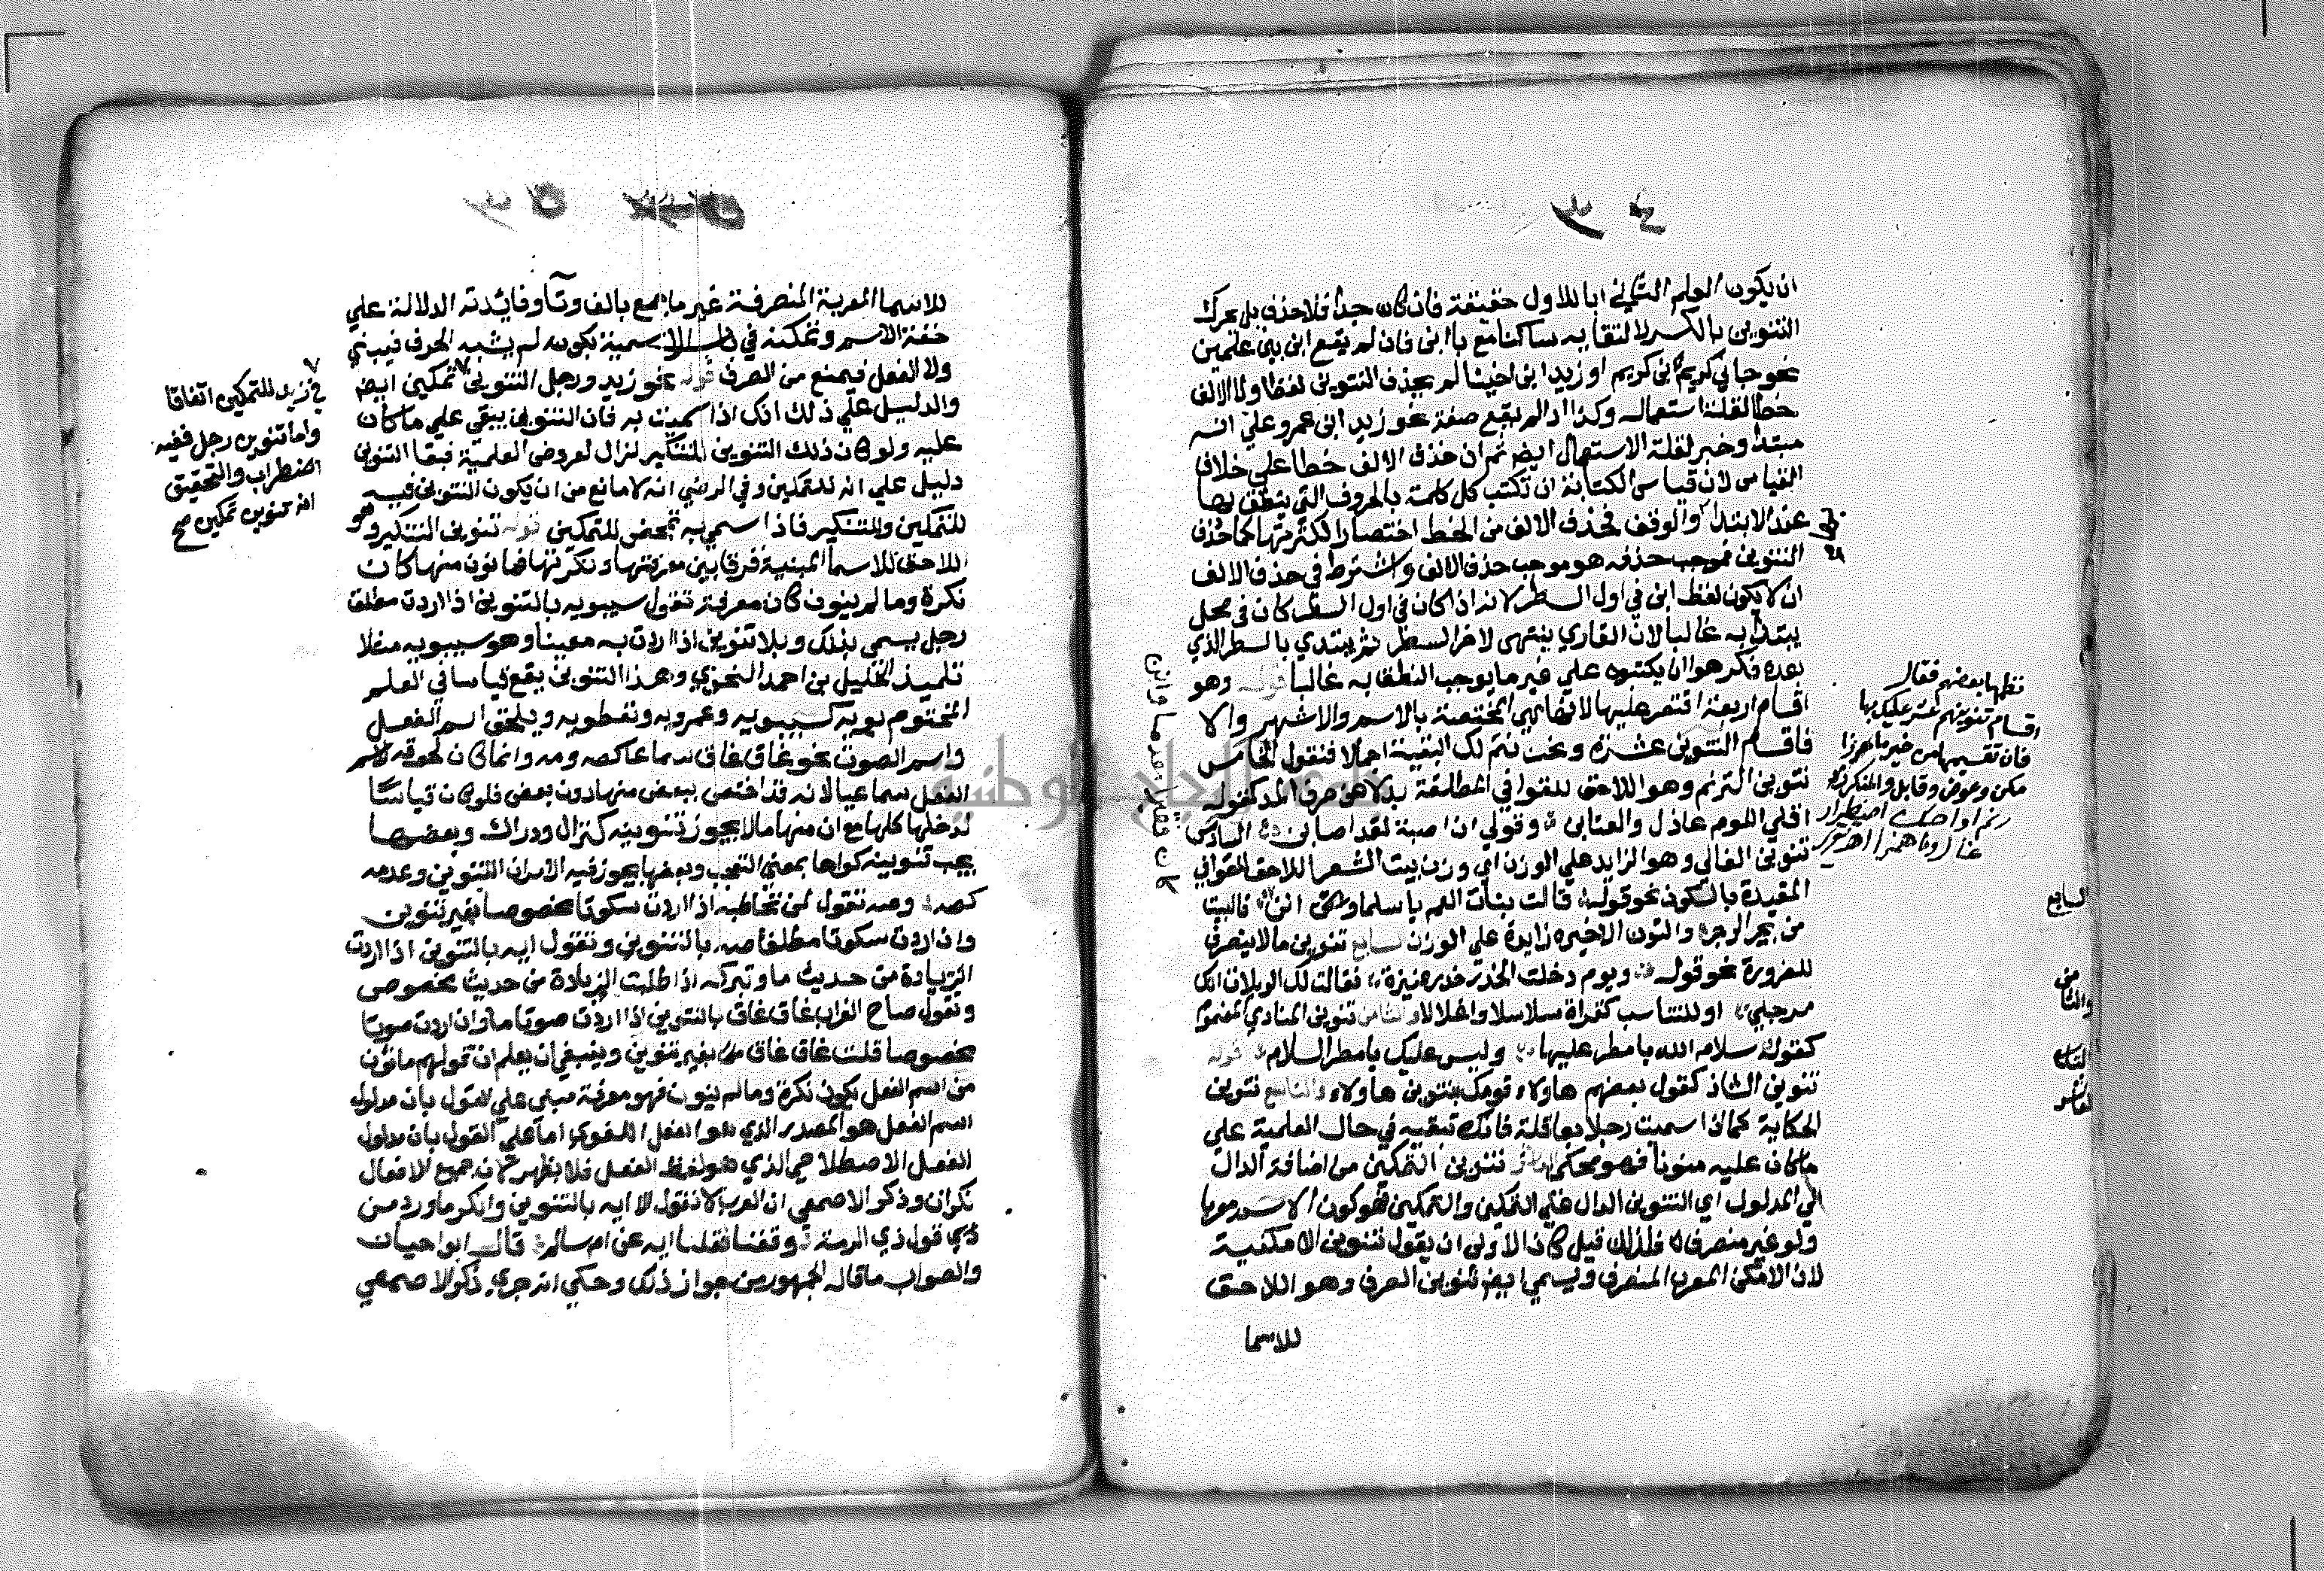 ان يكون العلم الثاني ابا للاول حقيقة فان كان جدا فلا حذف بل يحرك
التنوين بالكسر لالتقايه ساكنا مع با ابن فان لم يقع ابن بين علمين
نحو جاني كريم ابن كريم او زيد ابن اخينا لم يحذف التنوين لفظا ولا الالف
خطا لقلة استعماله وكذا اذا لم يقع صفة نحو زيد ابن عمرو علي انه
مبتدا وخبر لقلة الاستعمال ايضا ثم ان حذف الالف خطا علي خلاف
القياس لان قياس الكتابة ان تكتب كل كلمة بالحروف التي ينطق بها
عند الابتدا والوقف فحذف الالف من الخط اختصارا لكثرتها كما حذف
التنوين فموجب حذفه هو موجب حذف الالف واشترط في حذف الالف
ان لا يكون لفظ ابن في اول السطر لانه اذا كان في اول السطر كان في محل
يبتدا به غالبا لان القاري ينتهي لاخر السطر ثم يبتدي بالسطر الذي
بعده فكرهوا ان يكتبوه علي غير ما يوجب النطق به غالبا قوله وهو
اقسام اربعة اقتصر عليها لانها هي المختصة بالاسم والاشهر والا
فاقسام التنوين عشرة ونحن نتم لك البقية اجمالا فنقول الخامس
تنوين الترنم وهو اللاحق للقوافي المطلقة بدلا من حرف المد كقوله
اقلي اللوم عاذل والعتابن وقولي ان اصبت لقد اصابن السادس
تنوين الغالي وهو الزايد علي الوزن اي وزن بيت الشعر اللاحق القوافي
المقيدة بالسكون نحو قوله قالت بنات العم يا سلما وهي انن فالبيت
من بحر الرجز والنون الاخيره زايدة علي الوزن سابع تنوين ما لا ينصرف
للضرورة نحو قوله ويوم دخلت الخدر خدر عنيزة فقالت لك الويلات انك
مرجلي او للتناسب كقراة سلاسلا واغلالا والثامن تنوين المنادي المضموم
كقوله سلام الله يا مطر عليها وليس عليك يا مطر السلام قوله
تنوين الشاذ كقول بعضهم هاولاء قومك بتنوين هاولاء والتاسع تنوين
الحكاية كما اذا سميت رجلا بعاقلة فانك تبقيه في حال العلمية علي
ما كان عليه منونا فهو محكي قوله تنوين التمكين من اضافة الدال
الي المدلول اي التنوين الدال علي التمكين والتمكين هو كون الاسم معربا
ولو غير منصرف فلذلك قيل كان الاولي ان يقول تنوين الامكنية
لان الامكن المعرب المنصرف ويسمي ايضا تنوين الصرف وهو اللاحق
للاسما
نظمها بعضهم فقال
اقسام تنوينهم عشر عليك بها
فان تقسيمها من خير ما حرزا
مكن وعوض وقابل والمنكر زد
رنم او احك اضطرار
غال وما همزا اهـ
السابع
والثامن
التاسع
العاشر
للاسما المعربة المنصرفة غير ما جمع بالف وتا وفايدته الدلالة علي
خفة الاسم وتمكنه في باب الاسمية بكونه لم يشبه الحرف فيبني
ولا الفعل فيمنع من الصرف قوله نحو زيد ورجل التنوين تمكين ايضا
والدليل علي ذلك انك اذا سميت به فان التنوين يبقي علي ما كان
عليه ولو كان ذلك التنوين للتنكير لزال لعروض العلمية فبقا التنوين
دليل علي انه للتمكين وفي الرضي انه لا مانع من ان يكون التنوين فيه
للتمكين وللتنكير فاذا سمي به تمحض للتمكين قوله تنوين التنكير وهو
اللاحق للاسما المبنية فرقا بين معرفتها ونكرتها فما نون منها كان
نكرة وما لم ينون كان معرفة تقول سيبويه بالتنوين اذا اردت مطلق
رجل يسمي بذلك وبلا تنوين اذا اردت به معينا وهو سيبويه مثلا
تلميذ الخليل بن احمد النحوي وهذا التنوين يقع قياسا في العلم
المختوم بويه كسيبويه وعمرويه ونفطويه ويلحق اسم الفعل
واسم الصوت نحو غاق غاق سماعا كصه ومه وانما كان لحوقه لاسم
الفعل سماعيا لانه قد اختص ببعض منها دون بعض فلو كان قياسيا
لدخلها كلها مع ان منها ما لا يجوز تنوينه كنزال ودراك وبعضها
يجب تنوينه كواها بمعني التعجب وبعضها يجوز فيه الامران التنوين وعدمه
كصه ومه تقول لمن تخاطبه اذا اردت سكوتا مخصوصا بغير تنوين
وان اردت سكوتا مطلقا صه بالتنوين وتقول ايه بالتنوين اذا اردت
الزيادة من حديث ما وتتركه اذا طلبت الزيادة من حديث مخصوص
وتقول صاح الغراب غاق غاق بالتنوين اذا اردت صوتا ما وان اردت صوتا
مخصوصا قلت غاق غاق من غير تنوين وينبغي ان يعلم ان قولهم ما نون
من اسم الفعل يكون نكرة وما لم ينون فهو معرفة مبني علي القول بان مدلول
اسم الفعل هو المصدر الذي هو الفعل اللغوي اما علي القول بان مدلول
الفعل الاصطلاحي الذي هو لفظ الفعل فلا يظهر لان جميع الافعال
نكرات وذكر الاصمعي ان العرب لا تقول الا ايه بالتنوين وانكر ما ورد من
قول ذي الرمة وقفنا فقلنا ايه عن ام سالم قال ابو حيان
والصواب ما قاله الجمهور من جواز ذلك وحكي انه جري ذكر الاصمعي
في زيد للتمكين اتفاقا
واما تنوين رجل ففيه
اضطراب والتحقيق
انه تنوين تمكين صح